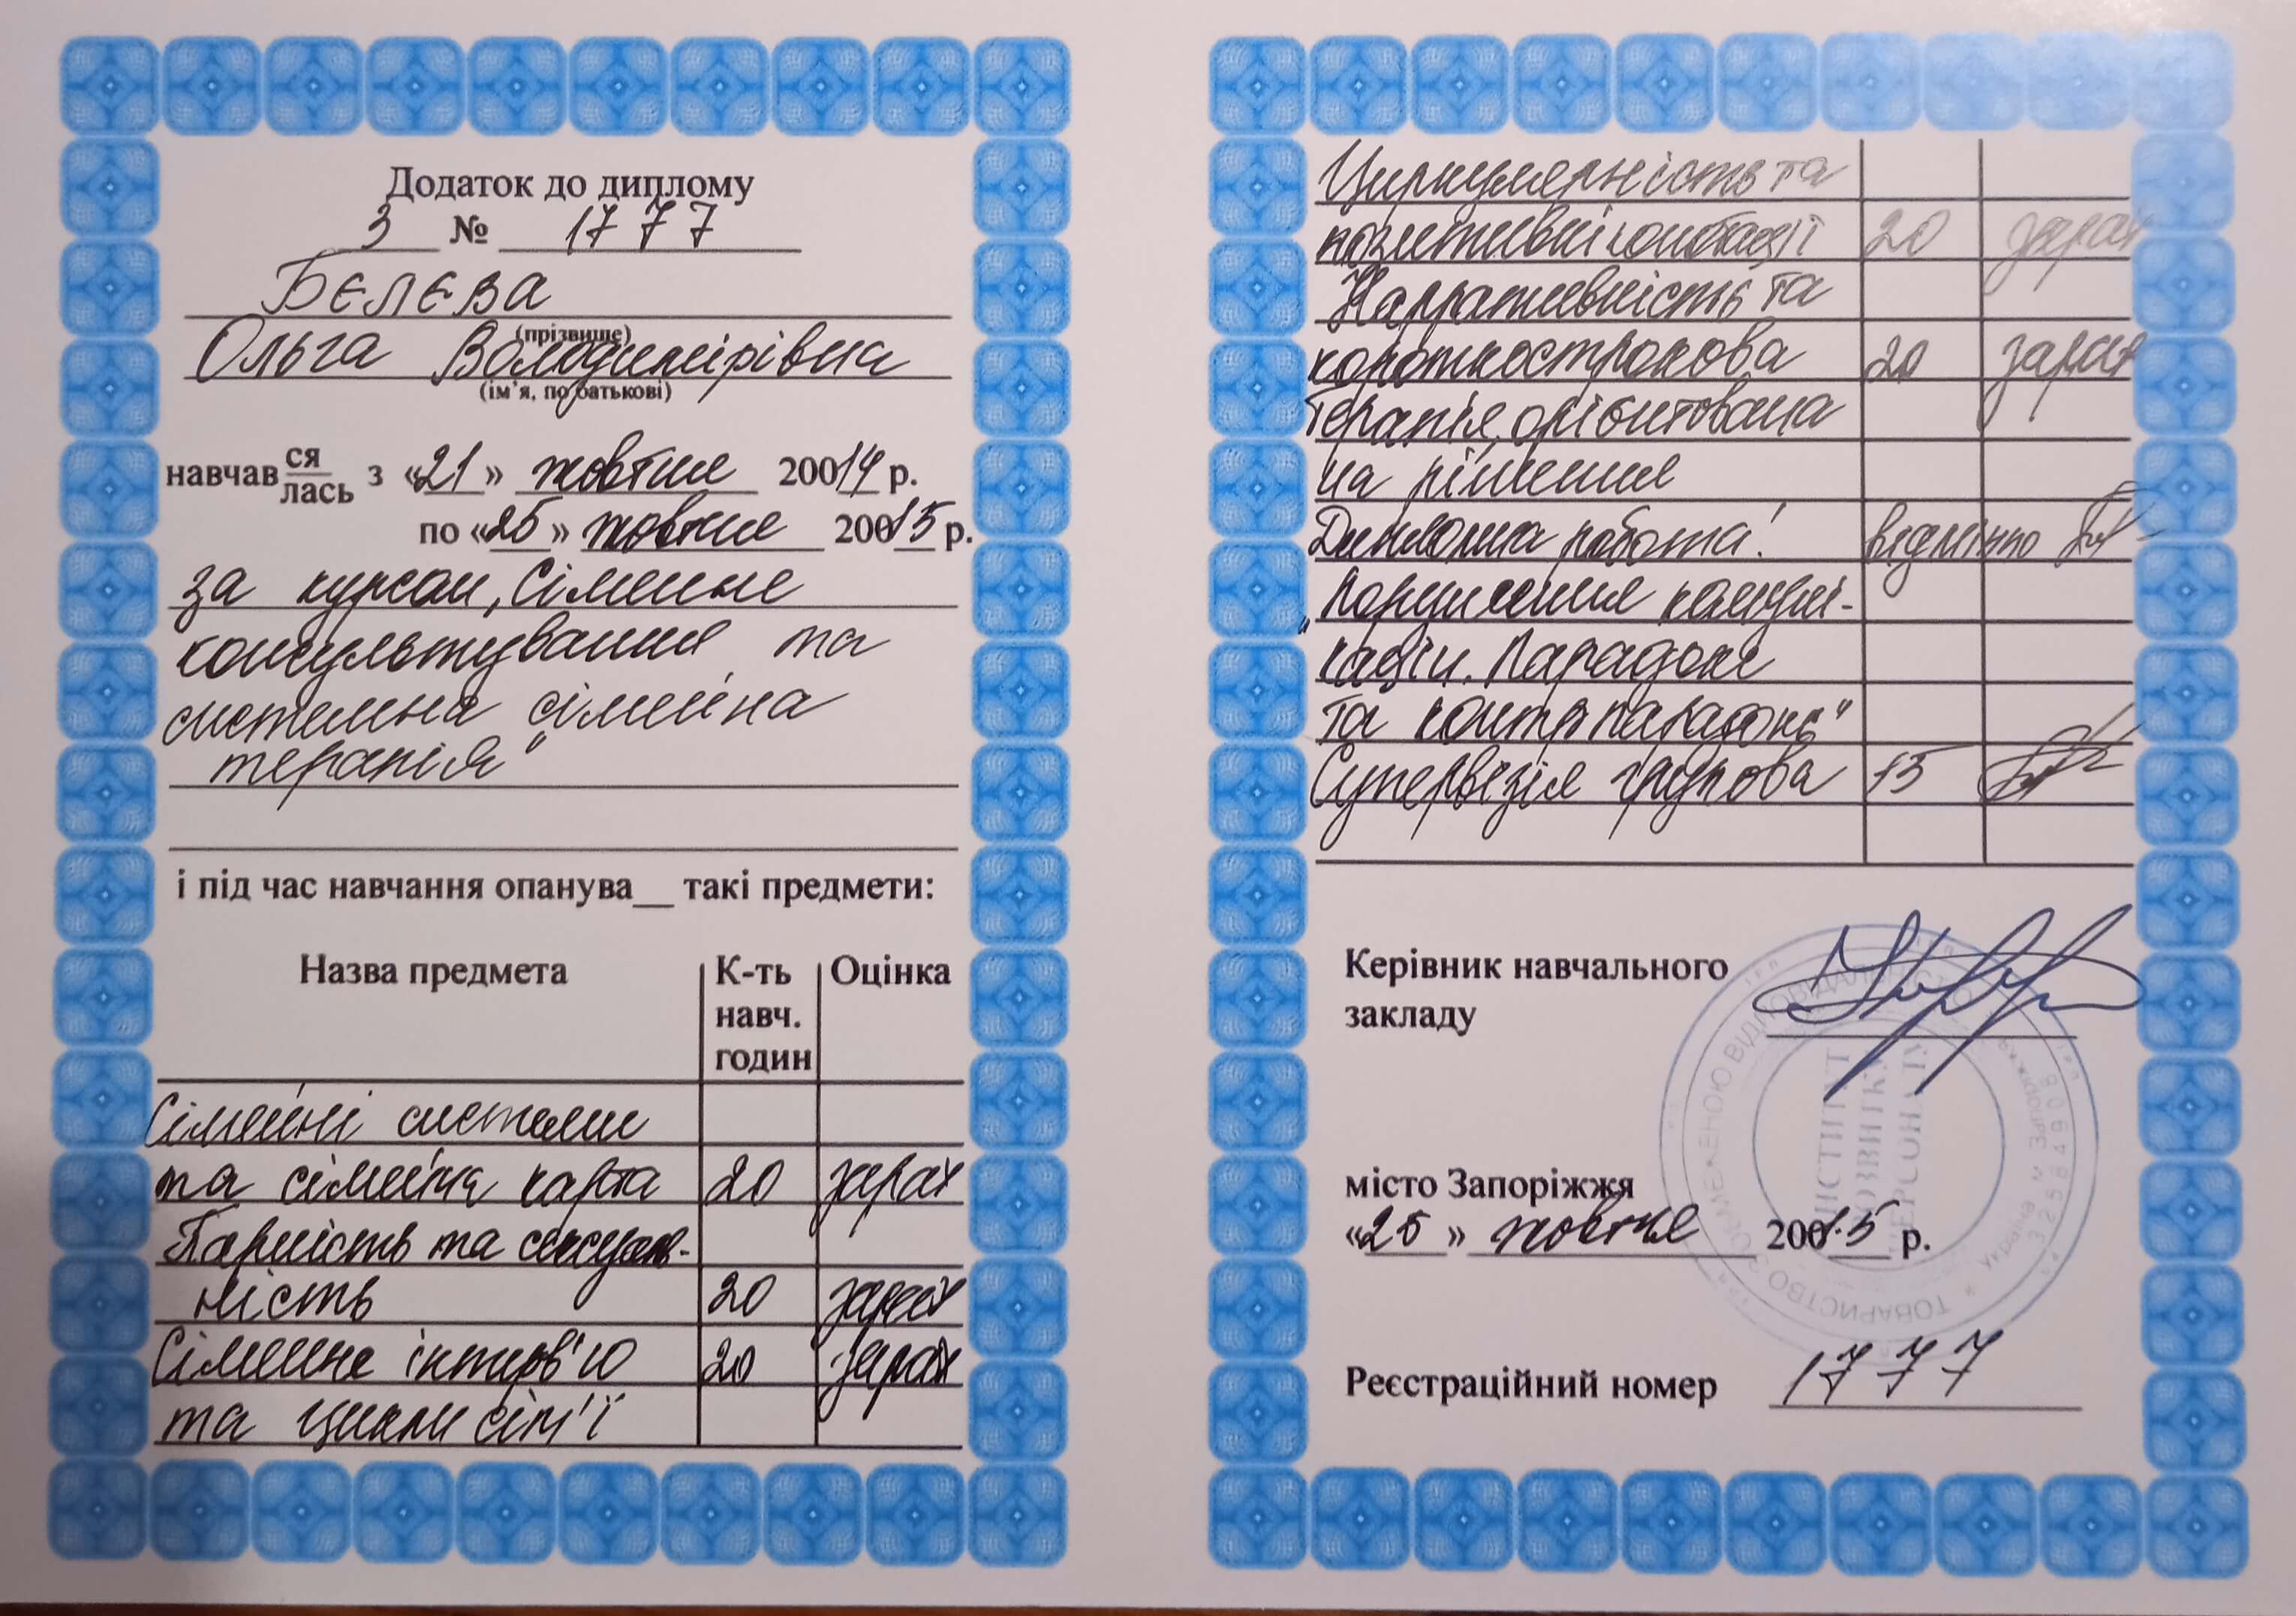 Додаток до диплому
З № 1777
Бєлєва
(прізвище)
Ольга Володимирівна
(ім'я, по батькові)
навчав ся/лась з «21» жовтня 20014 р.
по «25» жовтня 20015 р.
за курсом „Сімейне
консультування та
системна сімейна
терапія"
і під час навчання опанува__ такі предмети:
Назва предмета К-ть навч. годин Оцінка
Сімейні системи
та сімейна карта 20 зарах
Парність та сексуаль-
ність 20 зарах
Сімейне інтерв'ю 20 зарах
та цикли сім'ї
Циркулярність та
позитивні конотації 20 зарах
Нарративність та
короткострокова 20 зарах
терапія, орієнтована
на рішення
Дипломна робота: відмінно
„Порушення комуні-
кації. Парадокс
та контрпарадокс"
Супервізія групова 15
Керівник навчального
закладу
ТОВАРИСТВО З ОБМЕЖЕНОЮ ВІДПОВІДАЛЬНІСТЮ
ІНСТИТУТ
РОЗВИТКУ
ПЕРСОНАЛУ
Україна м. Запоріжжя
32584908
місто Запоріжжя
«25» жовтня 20015 р.
Реєстраційний номер 1777